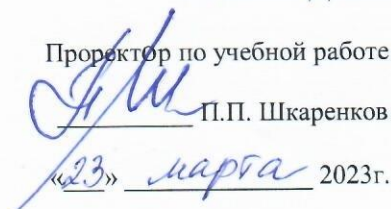 Проректор по учебной работе
П.П. Шкаренков
«23» марта 2023г.